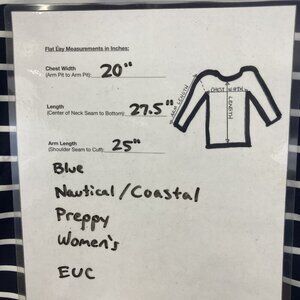 Flat Lay Measurements in Inches:
Chest Width
(Arm Pit to Arm Pit): 20"
Length
(Center of Neck Seam to Bottom): 27.5"
Arm Length
(Shoulder Seam to Cuff): 25"
ARM LENGTH
CHEST WIDTH
LENGTH
Blue
Nautical/Coastal
Preppy
Women's
EUC